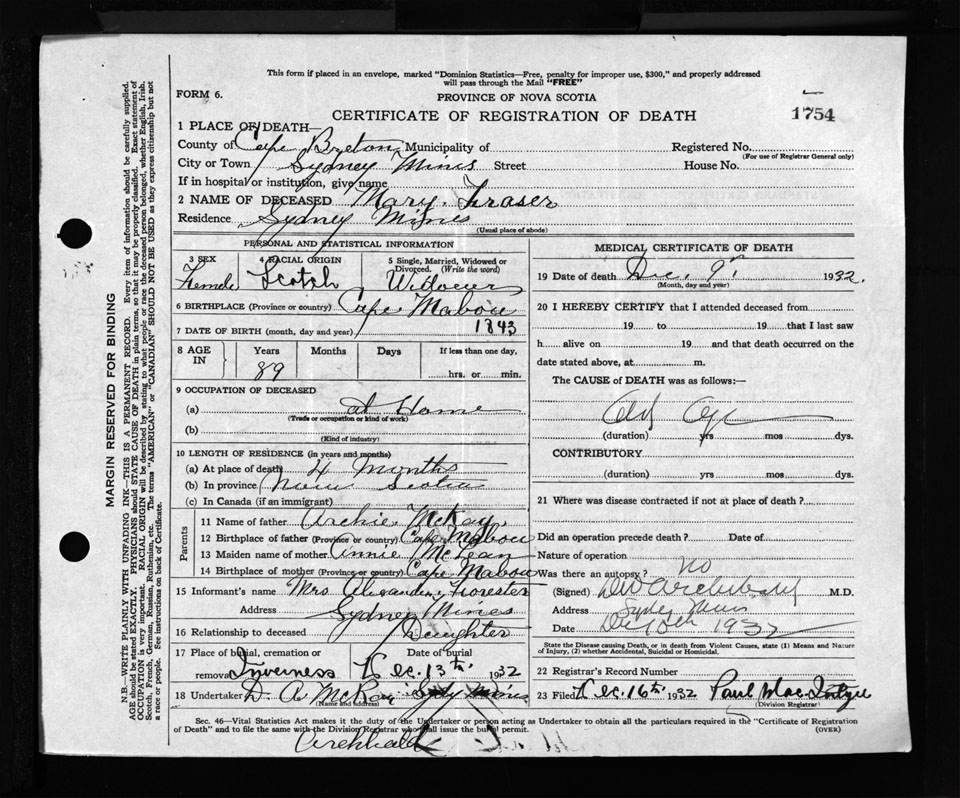 This form if placed in an envelope, marked "Dominion Statistics—Free, penalty for improper use, $300," and properly addressed
will pass through the Mail "FREE"
FORM 6.
PROVINCE OF NOVA SCOTIA
CERTIFICATE OF REGISTRATION OF DEATH
1754
1 PLACE OF DEATH—
County of Cape Breton Municipality of Registered No.
(For use of Registrar General only)
City or Town Sydney Mines Street House No.
If in hospital or institution, give name
2 NAME OF DECEASED Mary Fraser
Residence Sydney Mines
(Usual place of abode)
PERSONAL AND STATISTICAL INFORMATION
3 SEX 4 RACIAL ORIGIN 5 Single, Married, Widowed or Divorced. (Write the word)
Female Scotch Widower
6 BIRTHPLACE (Province or country) Cape Mabou
7 DATE OF BIRTH (month, day and year) 1843
8 AGE IN Years Months Days If less than one day,
89 hrs. or min.
9 OCCUPATION OF DECEASED
(a) at Home
(Trade or occupation or kind of work)
(b)
(Kind of industry)
10 LENGTH OF RESIDENCE (in years and months)
(a) At place of death 4 months
(b) In province Nova Scotia
(c) In Canada (if an immigrant)
Parents
11 Name of father Archie McKay
12 Birthplace of father (Province or country) Cape Mabou
13 Maiden name of mother Annie McLean
14 Birthplace of mother (Province or country) Cape Mabou
15 Informant's name Mrs Alexander Forester
Address Sydney Mines
16 Relationship to deceased Daughter
17 Place of burial, cremation or removal Date of burial
Inverness Dec. 13th 1932
18 Undertaker D. A. McKay Syd Mines
(Name and address)
MEDICAL CERTIFICATE OF DEATH
19 Date of death Dec. 9th 1932.
(Month, day and year)
20 I HEREBY CERTIFY that I attended deceased from
19 to 19 that I last saw
h alive on 19 and that death occurred on the
date stated above, at m.
The CAUSE of DEATH was as follows:—
Old Age
(duration) yrs mos dys.
CONTRIBUTORY
(duration) yrs mos dys.
21 Where was disease contracted if not at place of death?
Did an operation precede death? Date of
Nature of operation
Was there an autopsy? no
(Signed) DW Archibald M.D.
Address Sydney Mines
Date Dec 10th 1932
State the Disease causing Death, or in death from Violent Causes, state (1) Means and Nature
of Injury, (2) whether Accidental, Suicidal or Homicidal.
22 Registrar's Record Number
23 Filed Dec. 16th 1932 Paul MacIntyre
(Division Registrar)
Sec. 46—Vital Statistics Act makes it the duty of the Undertaker or person acting as Undertaker to obtain all the particulars required in the "Certificate of Registration
of Death" and to file the same with the Division Registrar who shall issue the burial permit.
(OVER)
Archibald
MARGIN RESERVED FOR BINDING
N.B.—WRITE PLAINLY WITH UNFADING INK—THIS IS A PERMANENT RECORD. Every item of information should be carefully supplied.
AGE should be stated EXACTLY. PHYSICIANS should STATE CAUSE OF DEATH in plain terms, so that it may be properly classified. Exact statement of
OCCUPATION is very important. RACIAL ORIGIN will be described by stating to what people or race the deceased person belonged, whether English, Irish,
Scotch, French, German, Russian, Ruthenian, etc. The terms "AMERICAN" or "CANADIAN" SHOULD NOT BE USED as they express citizenship but not
a race or people. See instructions on back of Certificate.